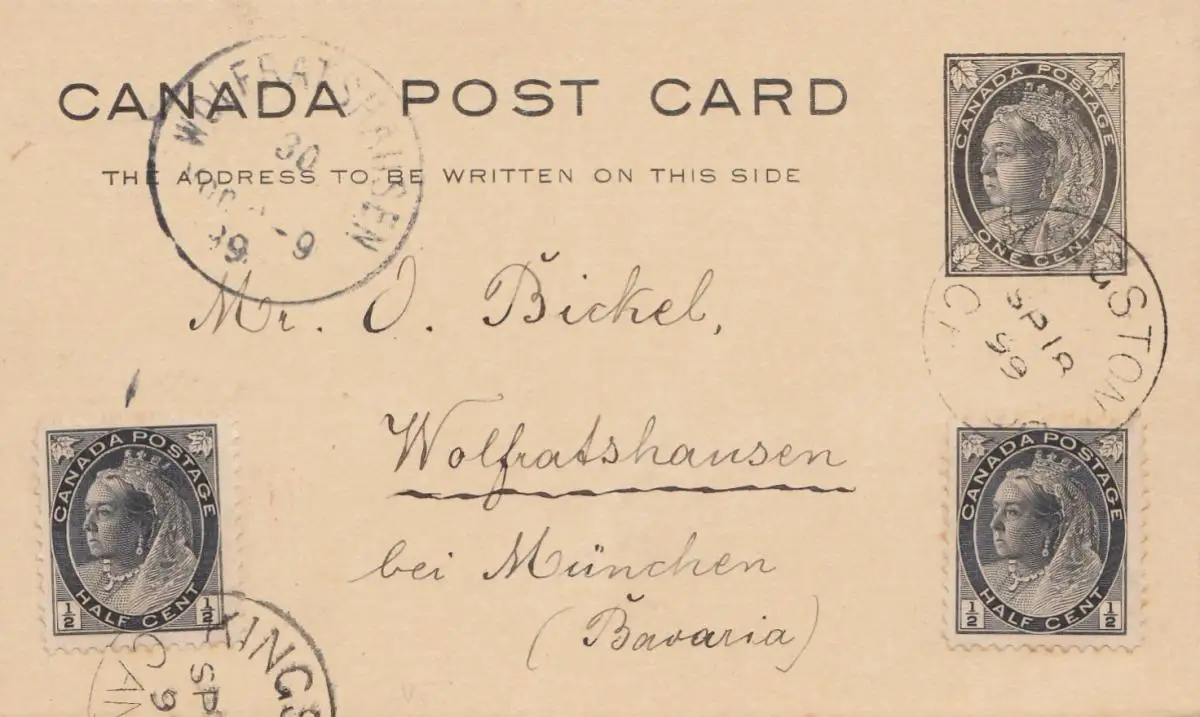 CANADA POST CARD
THE ADDRESS TO BE WRITTEN ON THIS SIDE
WOLFRATSHAUSEN
30
9
CANADA POSTAGE
ONE CENT
KINGSTON
CA
SP 18
99
Mr. O. Bickel,
Wolfratshausen
bei München
(Bavaria)
CANADA POSTAGE
½ HALF CENT ½
CANADA POSTAGE
½ HALF CENT ½
KINGS
SP
9
CAN